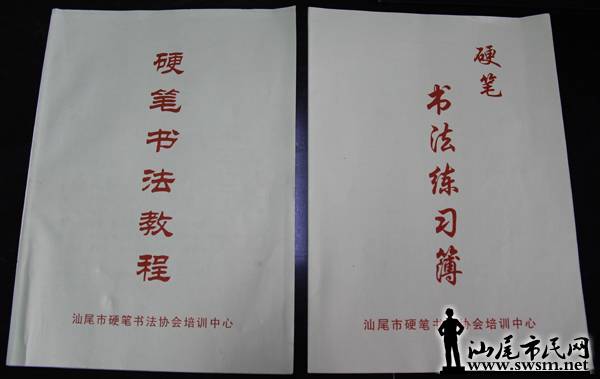 硬笔书法教程
汕尾市硬笔书法协会培训中心
硬笔
书法练习簿
汕尾市硬笔书 协会培训中心
汕尾市民网
www.swsm.net